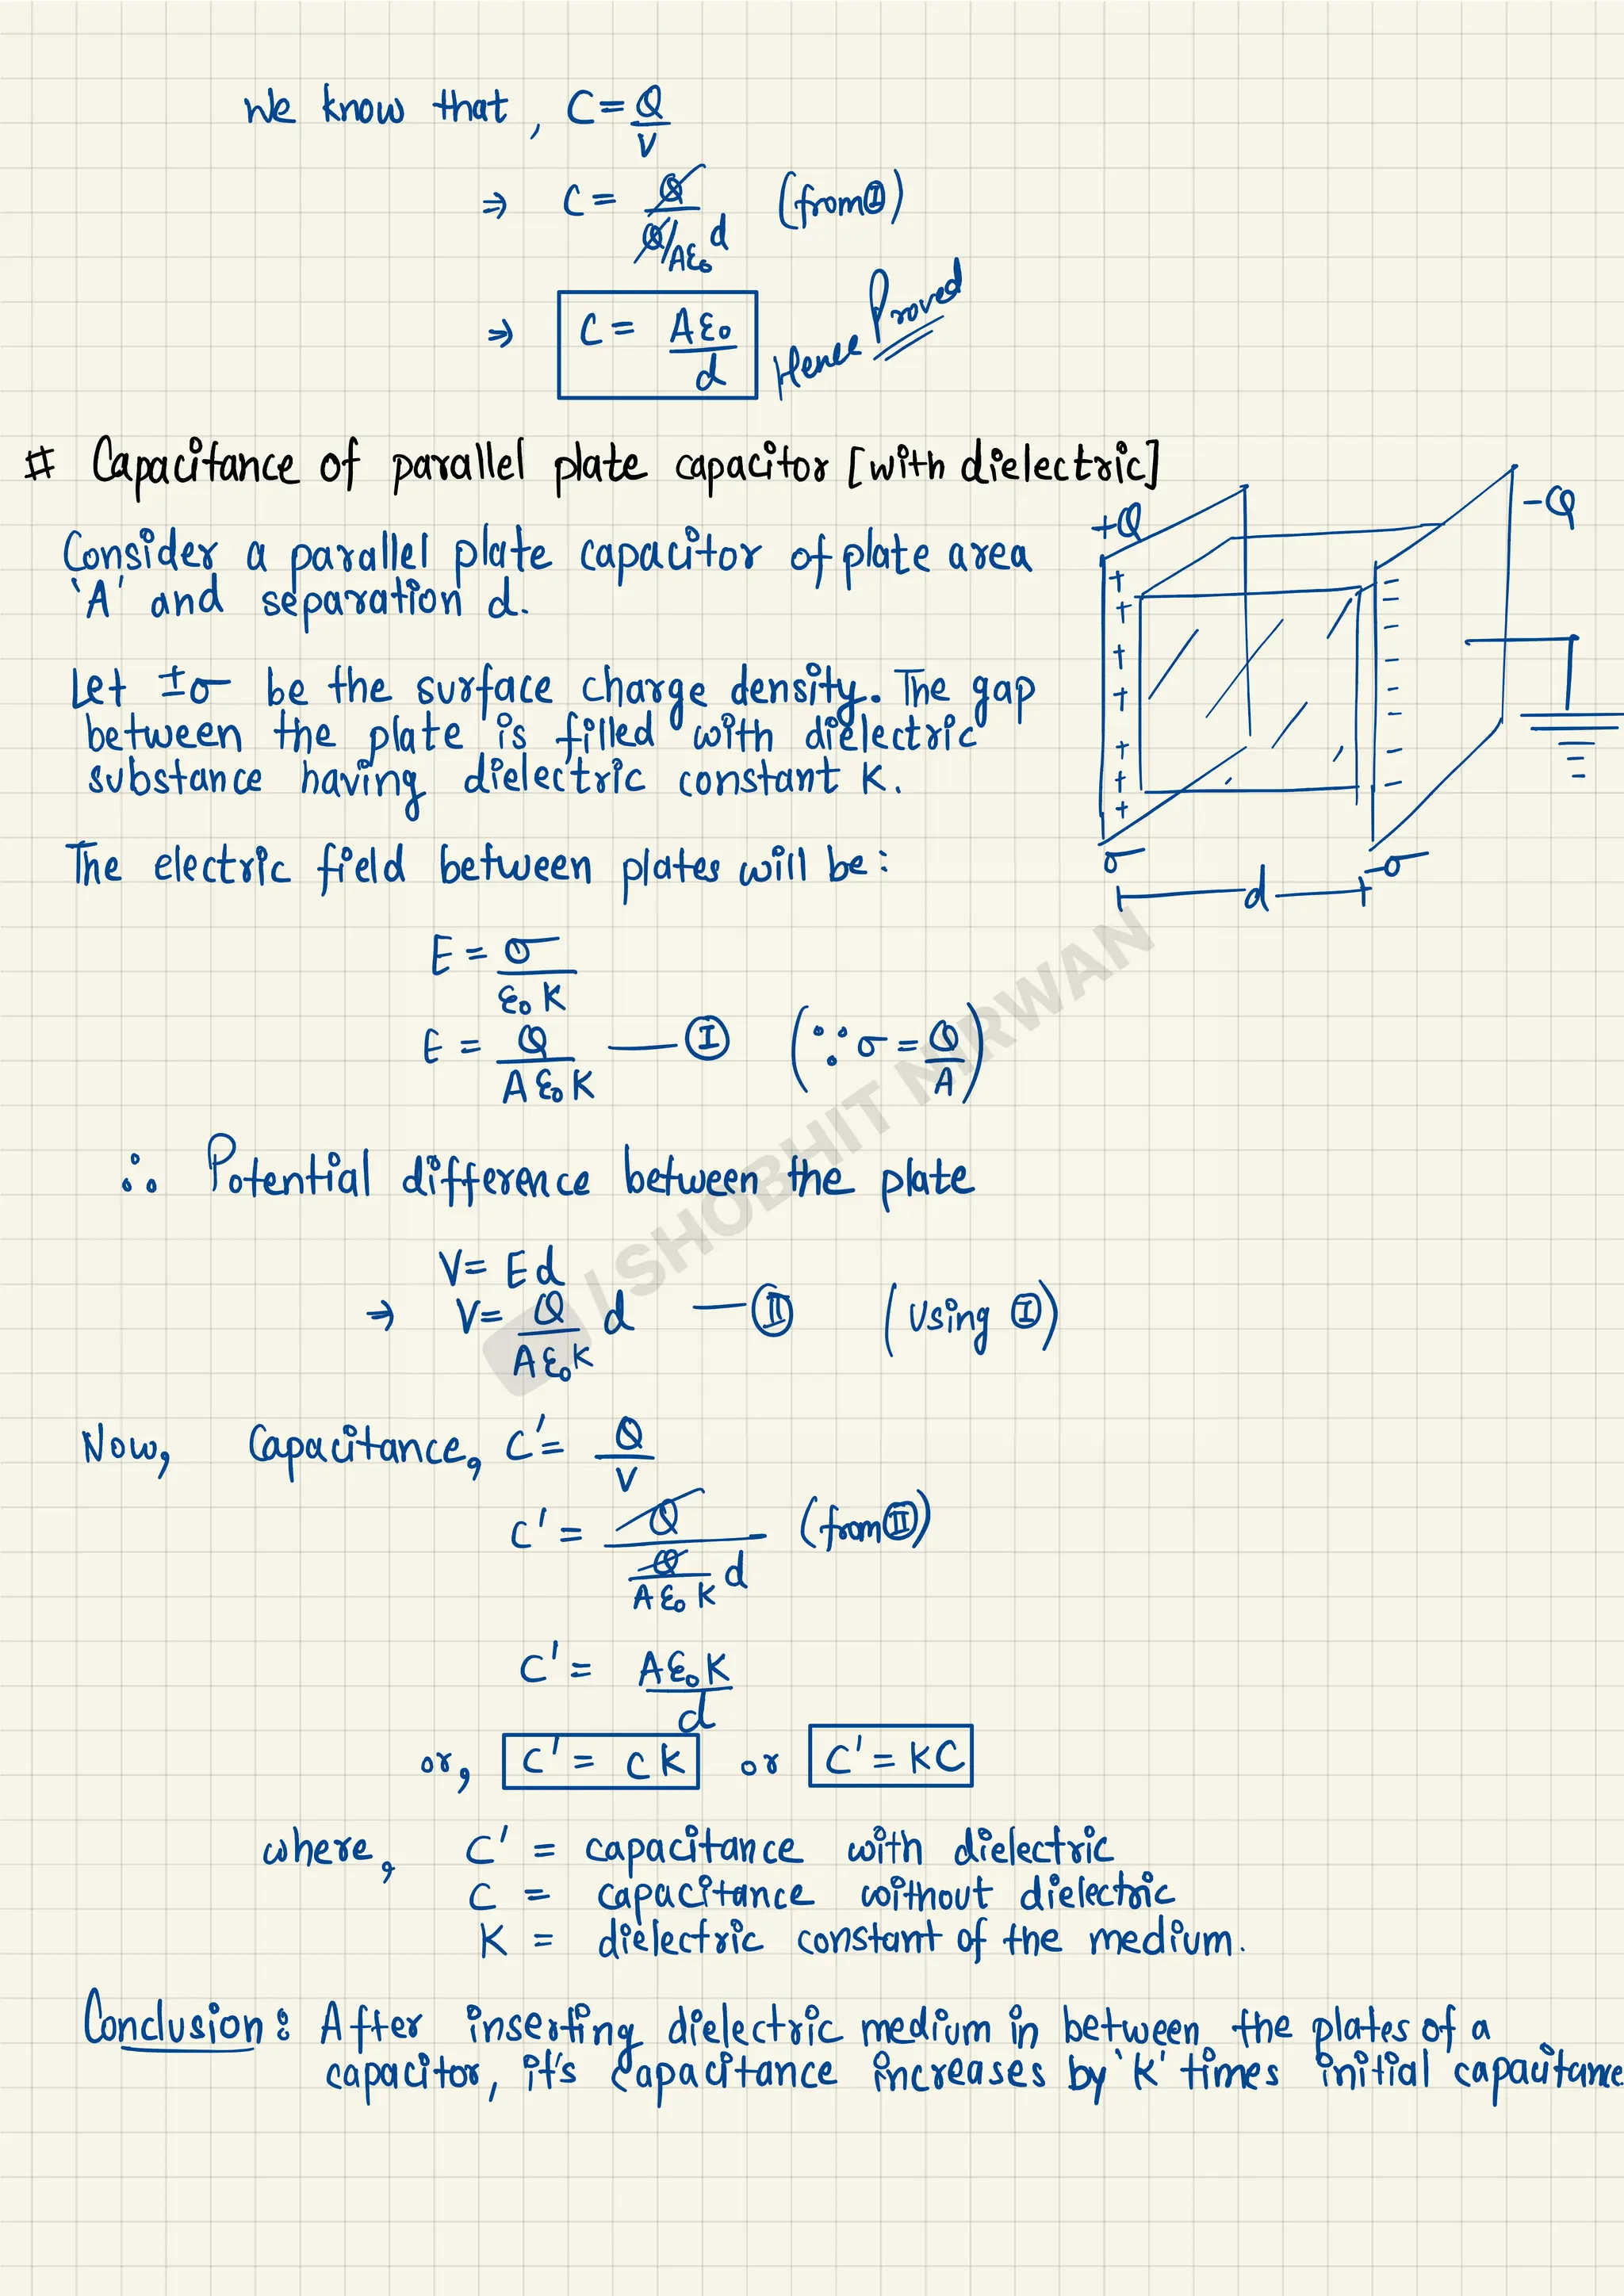 We know that, C = Q/V
⇒ C = Q / (Q/Aε₀ d) (from Ⓘ)
⇒ C = Aε₀/d Hence Proved
# Capacitance of parallel plate capacitor [with dielectric]
Consider a parallel plate capacitor of plate area
'A' and separation d.
Let ±σ be the surface charge density. The gap
between the plate is filled with dielectric
substance having dielectric constant K.
The electric field between plates will be:
+Q
-Q
+ + + + + + +
- - - - - - - -
σ
-σ
d
E = σ/ε₀K
E = Q/Aε₀K — Ⓘ (∵ σ = Q/A)
∴ Potential difference between the plate
V = Ed
⇒ V = Q/Aε₀K d — Ⓘⓘ (Using Ⓘ)
/ SHOBHIT NIRWAN
Now, Capacitance, C' = Q/V
C' = Q / (Q/Aε₀K d) (from Ⓘⓘ)
C' = Aε₀K/d
or, C' = CK or C' = KC
where, C' = capacitance with dielectric
C = capacitance without dielectric
K = dielectric constant of the medium.
Conclusion: After inserting dielectric medium in between the plates of a
capacitor, it's capacitance increases by 'K' times initial capacitance